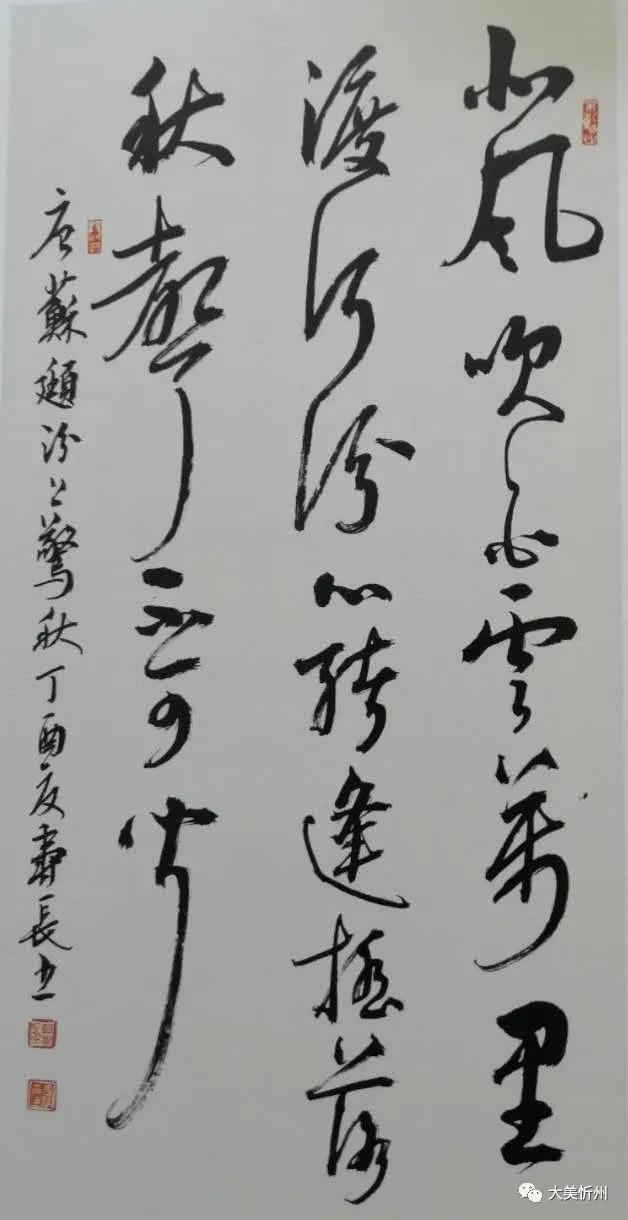 北风吹白云萬里
渡河汾心緒逢摇落
秋聲不可聞
唐蘇頲汾上驚秋丁酉夏壽長书
大美忻州